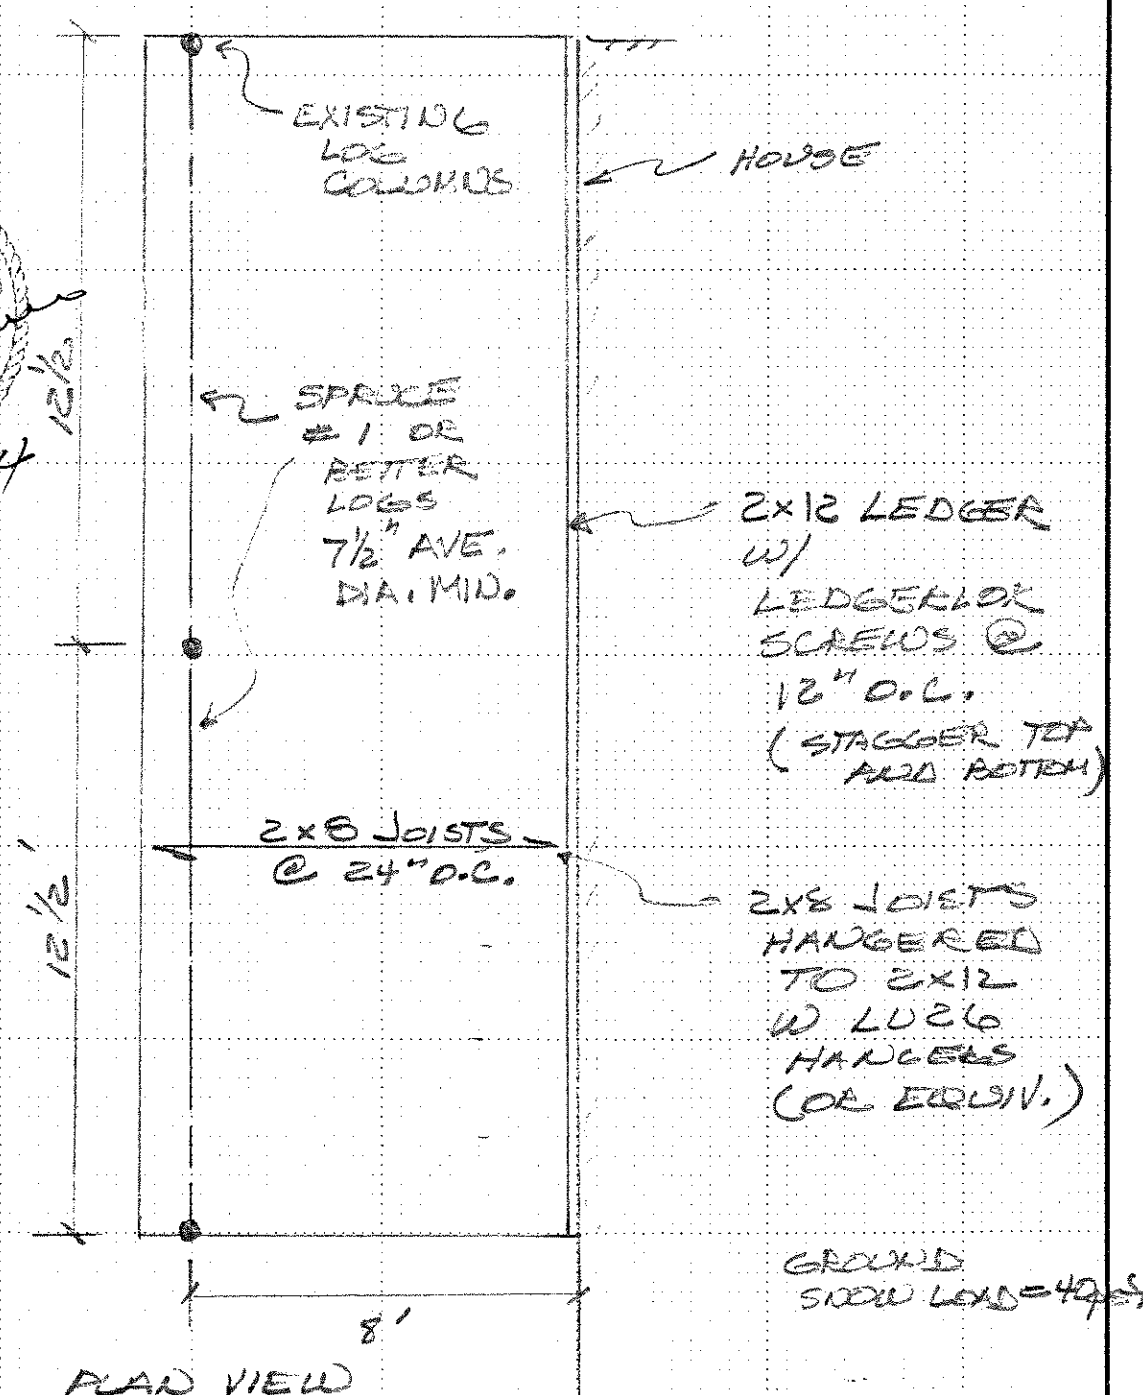 EXISTING
LOG
COLUMNS
HOUSE
12 1/2
SPRUCE
# 1 OR
BETTER
LOGS
7 1/2" AVE.
DIA. MIN.
2x12 LEDGER
W/
LEDGERLOK
SCREWS @
12" O.C.
(STAGGER TOP
AND BOTTOM)
2x8 JOISTS
@ 24" O.C.
12 1/2'
2x8 JOISTS
HANGERED
TO 2x12
W LU26
HANGERS
(OR EQUIV.)
GROUND
SNOW LOAD = 40psf
8'
PLAN VIEW